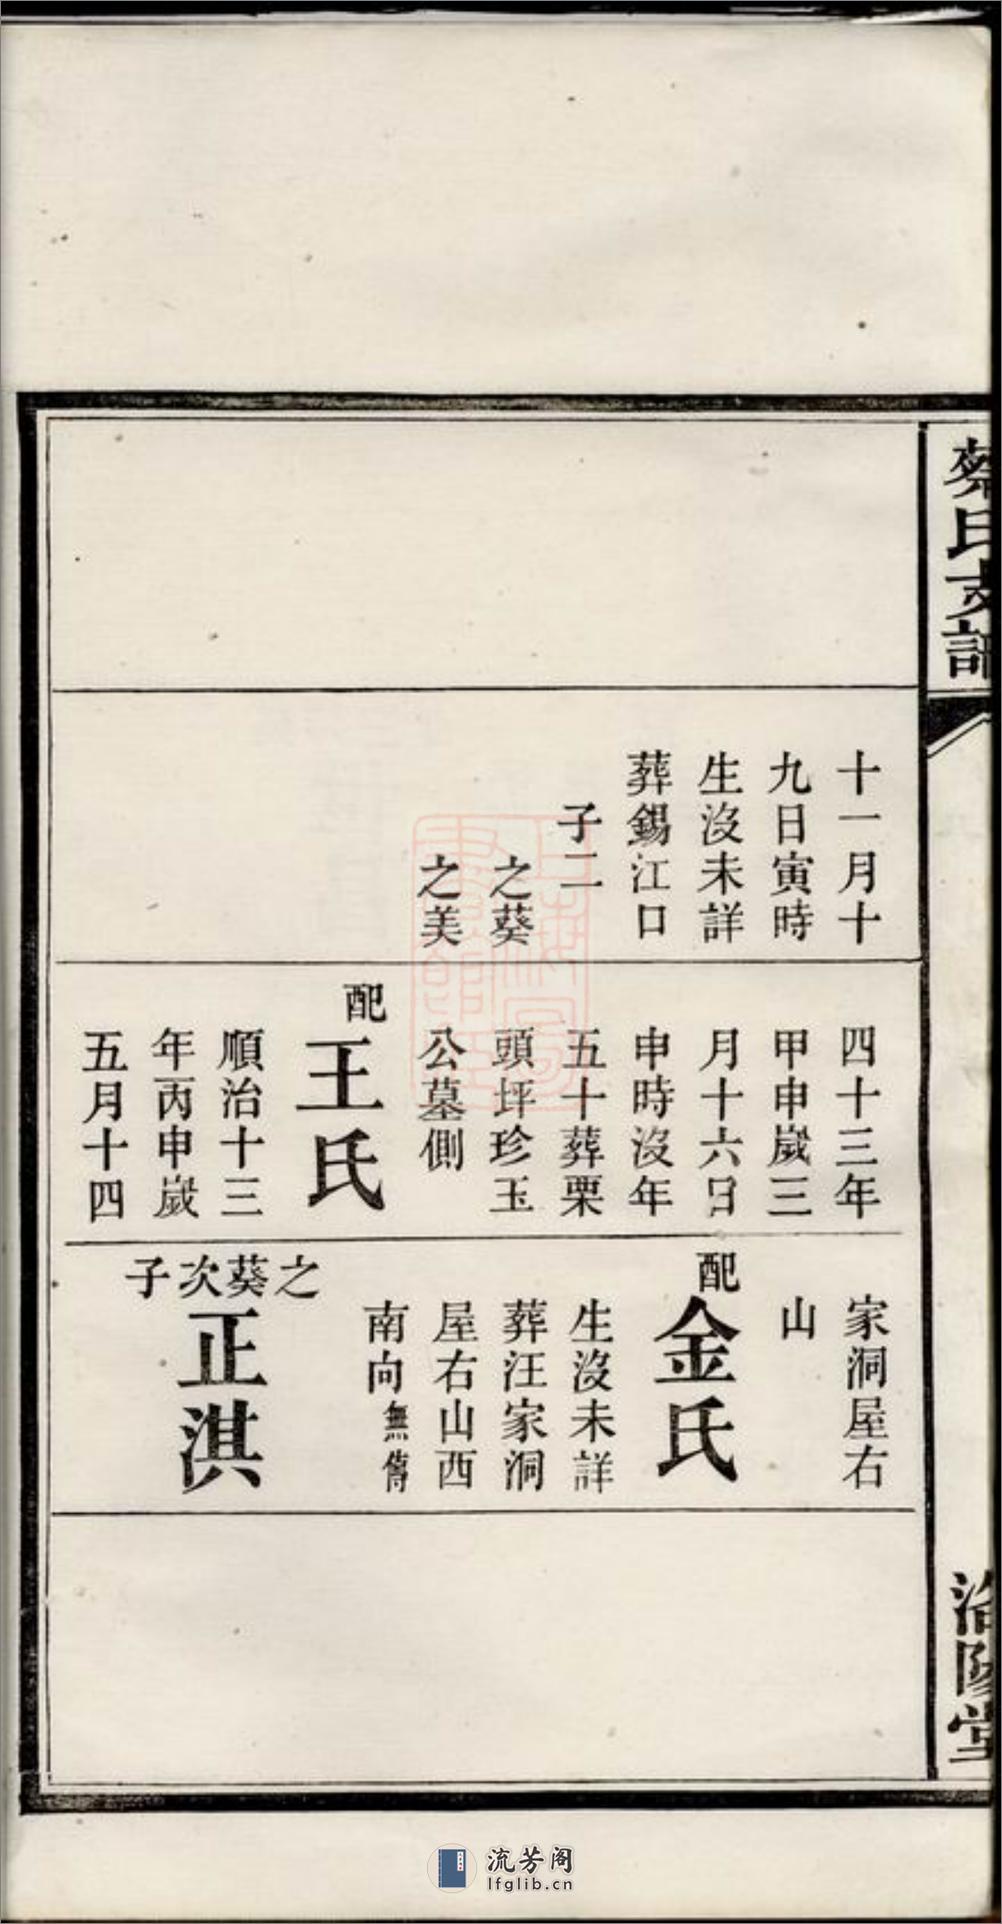 蔡氏支譜
洛陽堂
十一月十
九日寅時
生沒未詳
葬錫江口
子二
之葵
之美
四十三年
甲申歲三
月十六日
申時沒年
五十葬栗
頭坪珍玉
公墓側
配
王氏
順治十三
年丙申歲
五月十四
家洞屋右
山
配
金氏
生沒未詳
葬汪家洞
屋右山西
南向無傳
之葵次子
正淇
流芳阁
lfglib.cn